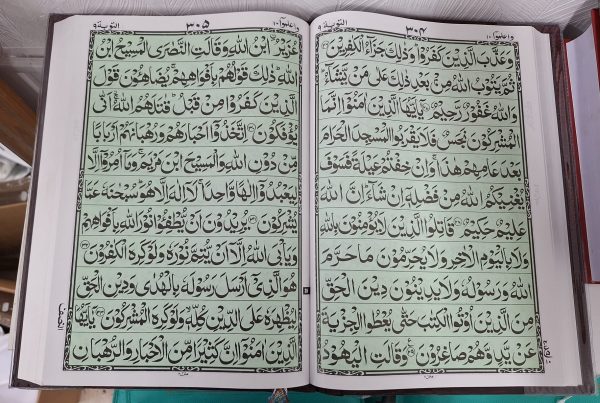 واعلموا ١٠ ٣٠٤ التوبة ٩
وَعَذَّبَ الَّذِيْنَ كَفَرُوْا وَذٰلِكَ جَزَآءُ الْكٰفِرِيْنَ ۝٢٦
ثُمَّ يَتُوْبُ اللّٰهُ مِنْۢ بَعْدِ ذٰلِكَ عَلٰى مَنْ يَّشَآءُ
وَاللّٰهُ غَفُوْرٌ رَّحِيْمٌ ۝٢٧ يٰۤاَيُّهَا الَّذِيْنَ اٰمَنُوْۤا اِنَّمَا
الْمُشْرِكُوْنَ نَجَسٌ فَلَا يَقْرَبُوا الْمَسْجِدَ الْحَرَامَ
بَعْدَ عَامِهِمْ هٰذَا ۚ وَاِنْ خِفْتُمْ عَيْلَةً فَسَوْفَ
يُغْنِيْكُمُ اللّٰهُ مِنْ فَضْلِهٖۤ اِنْ شَآءَ ؕ اِنَّ اللّٰهَ
عَلِيْمٌ حَكِيْمٌ ۝٢٨ قَاتِلُوا الَّذِيْنَ لَا يُؤْمِنُوْنَ بِاللّٰهِ
وَلَا بِالْيَوْمِ الْاٰخِرِ وَلَا يُحَرِّمُوْنَ مَا حَرَّمَ
اللّٰهُ وَرَسُوْلُهٗ وَلَا يَدِيْنُوْنَ دِيْنَ الْحَقِّ
مِنَ الَّذِيْنَ اُوْتُوا الْكِتٰبَ حَتّٰى يُعْطُوا الْجِزْيَةَ
عَنْ يَّدٍ وَّهُمْ صٰغِرُوْنَ ۝٢٩ وَقَالَتِ الْيَهُوْدُ
واعلموا ١٠ ٣٠٥ التوبة ٩
عُزَيْرُ ۨابْنُ اللّٰهِ وَقَالَتِ النَّصٰرَى الْمَسِيْحُ ابْنُ
اللّٰهِ ؕ ذٰلِكَ قَوْلُهُمْ بِاَفْوَاهِهِمْ ۚ يُضَاهِـُٔوْنَ قَوْلَ
الَّذِيْنَ كَفَرُوْا مِنْ قَبْلُ ؕ قَاتَلَهُمُ اللّٰهُ ۚ اَنّٰى
يُؤْفَكُوْنَ ۝٣٠ اِتَّخَذُوْۤا اَحْبَارَهُمْ وَرُهْبَانَهُمْ اَرْبَابًا
مِّنْ دُوْنِ اللّٰهِ وَالْمَسِيْحَ ابْنَ مَرْيَمَ ۚ وَمَاۤ اُمِرُوْۤا اِلَّا
لِيَعْبُدُوْۤا اِلٰهًا وَّاحِدًا ۚ لَاۤ اِلٰهَ اِلَّا هُوَ ؕ سُبْحٰنَهٗ عَمَّا
يُشْرِكُوْنَ ۝٣١ يُرِيْدُوْنَ اَنْ يُّطْفِـُٔوْا نُوْرَ اللّٰهِ بِاَفْوَاهِهِمْ
وَيَاْبَى اللّٰهُ اِلَّاۤ اَنْ يُّتِمَّ نُوْرَهٗ وَلَوْ كَرِهَ الْكٰفِرُوْنَ ۝٣٢
هُوَ الَّذِيْۤ اَرْسَلَ رَسُوْلَهٗ بِالْهُدٰى وَدِيْنِ الْحَقِّ
لِيُظْهِرَهٗ عَلَى الدِّيْنِ كُلِّهٖ ۙ وَلَوْ كَرِهَ الْمُشْرِكُوْنَ ۝٣٣ يٰۤاَيُّهَا
الَّذِيْنَ اٰمَنُوْۤا اِنَّ كَثِيْرًا مِّنَ الْاَحْبَارِ وَالرُّهْبَانِ
النصف